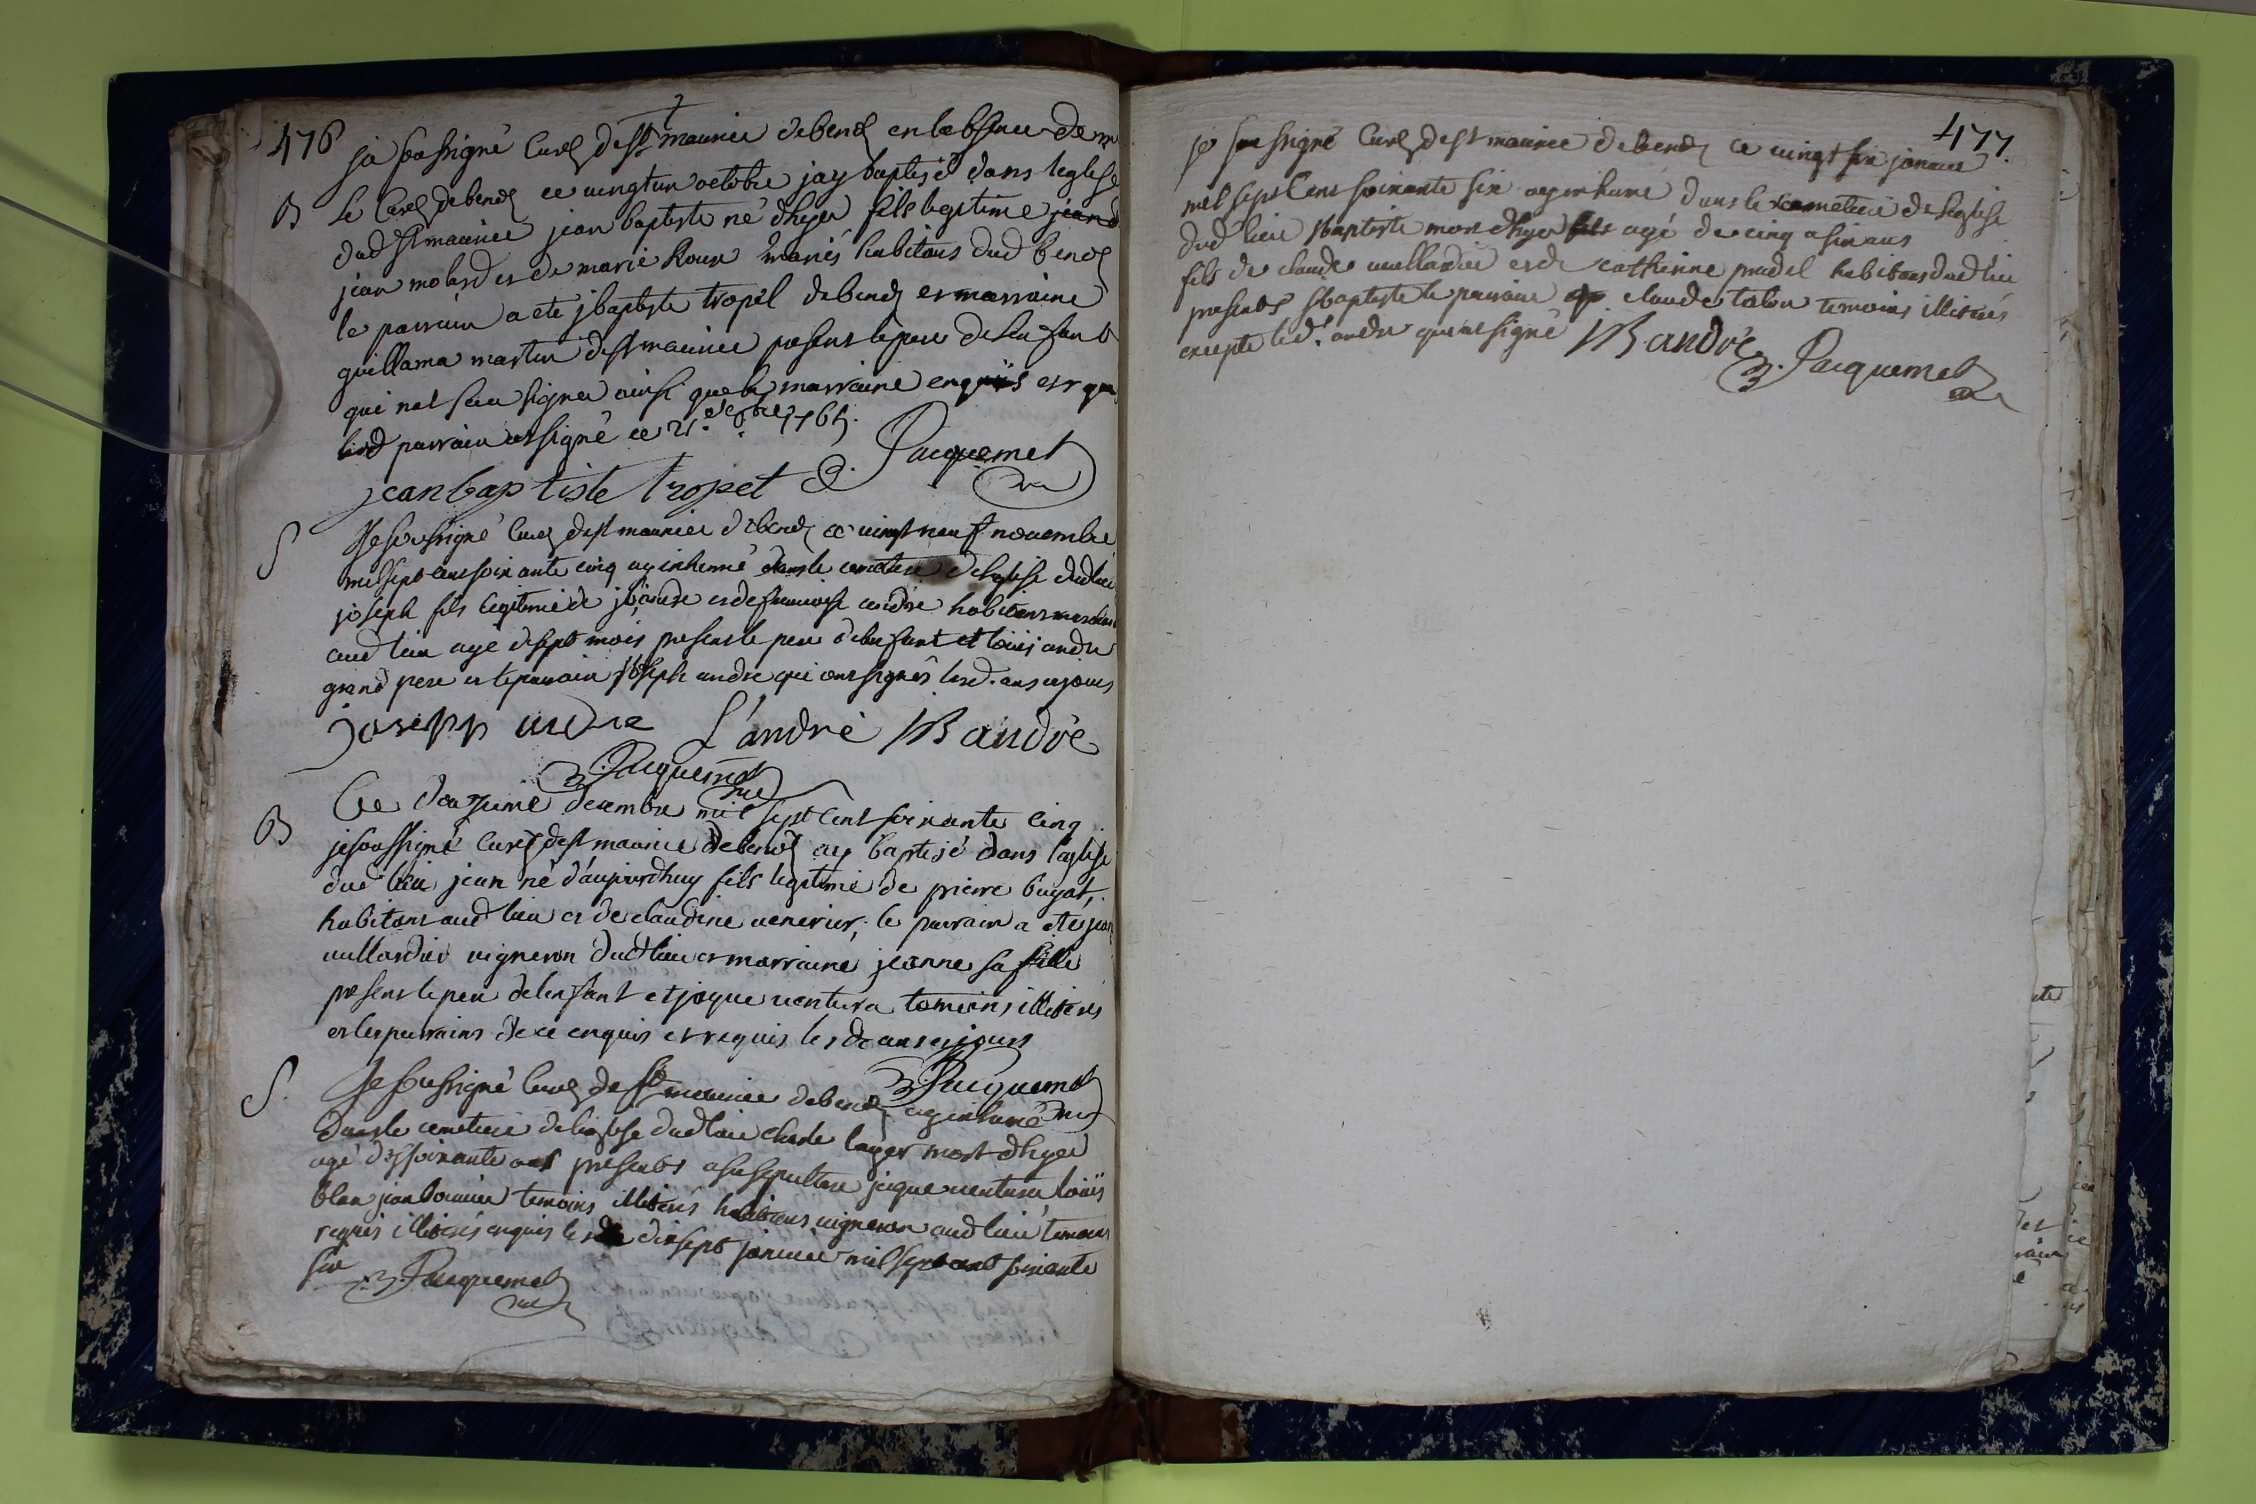 476
je soussigné Curé de st maurice debenc en labsence de m
B Le Curé debenc ce vingt un octobre jay baptisé dans leglise
dud st maurice jean baptiste né dhyer fils legitime jean
jean molard et de marie Roux mariés habitans dud benc
le parrain a eté jbaptiste tropél debenc et marraine
guillama martin de st maurice present le pere de lenfant
qui nat seu signer ainsi que la marraine enquis et
led parrain at signé ce 21e 8bre 1765.
jean baptiste tropet Pacquemet
S Je soussigné Curé de st maurice debenc ce vingt neuf novembre
mil sept cent soixante cinq ay inhumé dans le cemetiere de leglise dud lieu
joseph fils legitime de et de francoise andré habitans
aud lieu agé de sept mois present le pere de lenfant et loüis andre
grand pere et le parrain joseph andre qui ont signés lesd. ans et jours
joseph andre L'andrè JB andrè
Pacquemet
B Ce douzieme decembre mil sept cent soixante cinq
je soussigné Curé de st maurice debenc ay baptisé dans l'eglise
dud lieu jean né d'aujourdhuy fils legitime de pierre bugat,
habitans aud lieu et de claudine venerier, le parrain a ete jean
vullardier vigneron dud lieu et marraine jeanne sa fille
present le pere de lenfant et jaque ventura temoins illiterés
et les parrains de ce enquis et requis les d ans et jours
Pacquemet
S. Je soussigné Curé de st maurice debenc ay inhumé
dans le cemetiere de leglise dud lieu layer mort dhyer
agé de soixante ans presents a sa sepulture jaque ventura loüis
blan jean temoins illiterés habitans vigneron aud lieu temoins
requis illiterés enquis les dixsept janvier mil sept cent soixante
six Pacquemet
477.
je soussigné Curé de st maurice debenc ce vingt six janvier
mil sept Cent soixante six ay inhumé dans le cemetiere de leglise
dud lieu jbaptiste mort dhyer agé de cinq a six ans
fils de claude vullardier et de catherine pradel habitans dud lieu
presents jbaptiste le parrain claude talon temoins illiterés
excepte led. andre qui at signé JB andrè Pacquemet